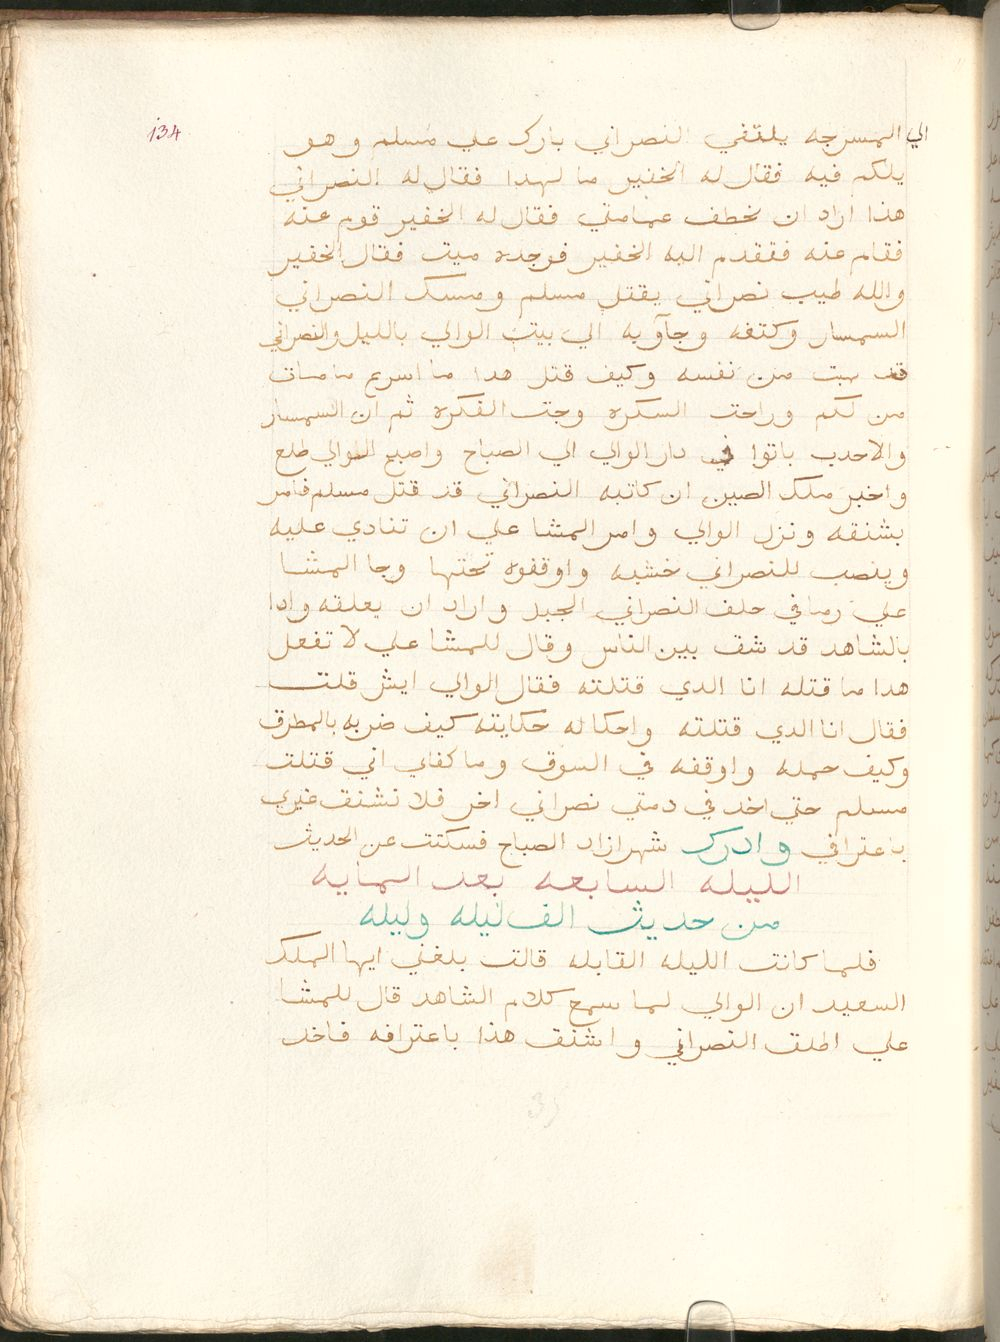 134
الي المسرجه يلتقي النصراني بارك علي مسلم وهو
يلكم فيه فقال له الخفير ما لهدا فقال له النصراني
هذا اراد ان يخطف عمامتي فقال له الخفير قوم عنه
فقام عنه فتقدم اليه الخفير فوجده ميت فقال الخفير
والله طيب نصراني يقتل مسلم ومسك النصراني
السمسار وكتفه وجآو به الي بيت الوالي بالليل والنصراني
قد بهت من نفسه وكيف قتل هدا ما اسرع ما مات
من لكم وراحت السكره وجت الفكره ثم ان السمسار
والاحدب باتوا في دار الوالي الي الصباح واصبح الوالي طلع
واخبر ملك الصين ان كاتبه النصراني قد قتل مسلم فامر
بشنقه ونزل الوالي وامر المشا علي ان تنادي عليه
وينصب للنصراني خشبه واوقفوه تحتها وجا المشا
علي رما في حلف النصراني الحبل واراد ان يعلقه وادا
بالشاهد قد شف بين الناس وقال للمشا علي لا تفعل
هدا ما قتله انا الدي قتلته فقال الوالي ايش قلت
فقال انا الدي قتلته واحكا له حكايته كيف ضربه بالمطرق
وكيف حمله واوقفه في السوق وما كفاي اني قتلت
مسلم حتي اخد في دمتي نصراني اخر فلا تشنق غيري
باعترافي وادرك شهرازاد الصباح فسكتت عن الحديث
الليله السابعه بعد المايه
من حديث الف ليله وليله
فلما كانت الليله القابله قالت بلغني ايها الملك
السعيد ان الوالي لما سمع كلام الشاهد قال للمشا
علي اطلق النصراني واشنق هذا باعترافه فاخد